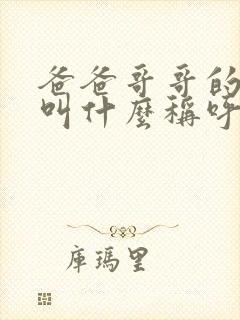 爸爸哥哥的
叫什麼稱呼
庫瑪里